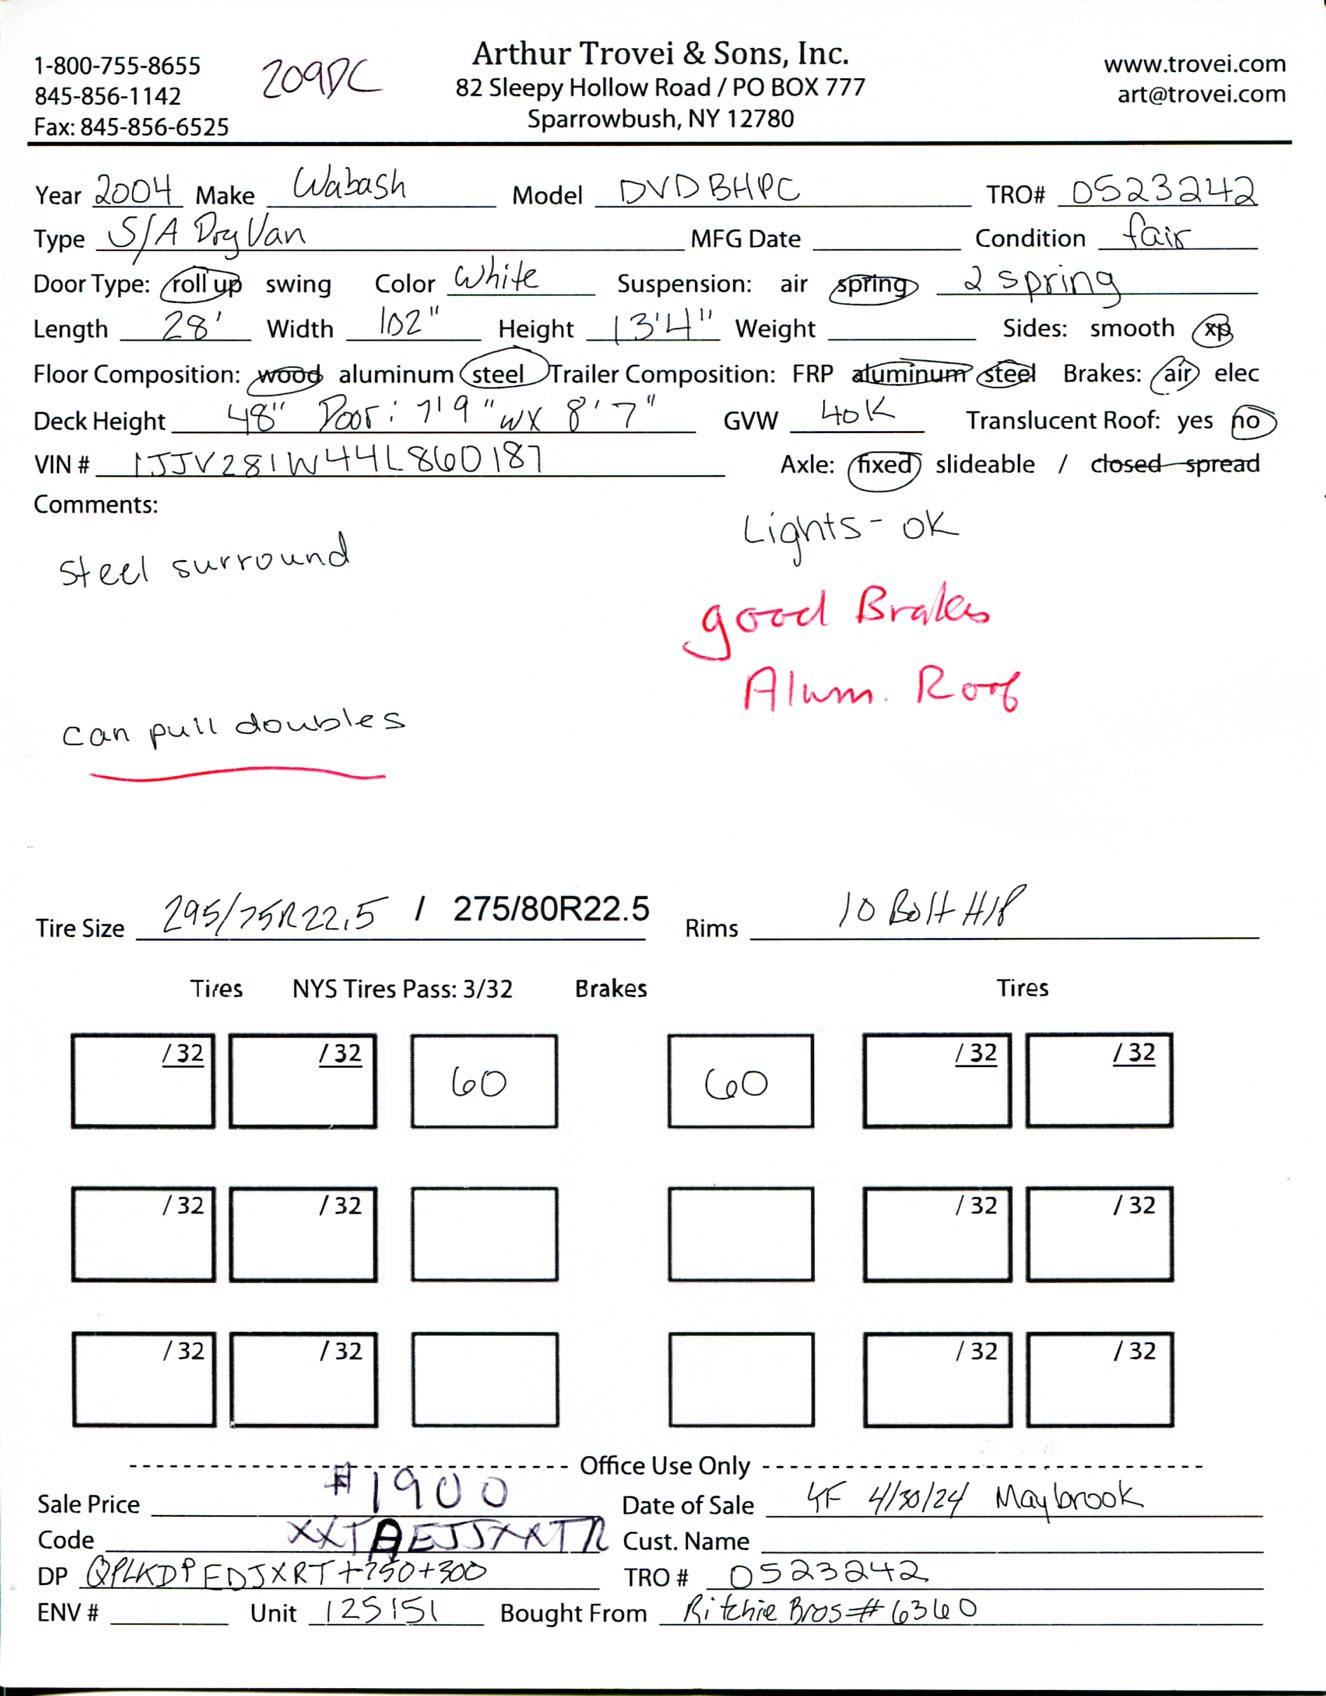 Arthur Trovei & Sons, Inc.
1-800-755-8655 209DC 82 Sleepy Hollow Road / PO BOX 777 www.trovei.com
845-856-1142 Sparrowbush, NY 12780 art@trovei.com
Fax: 845-856-6525
Year 2004 Make Wabash Model DVDBHPC TRO# 0523242
Type S/A Dry Van MFG Date Condition fair
Door Type: roll up swing Color White Suspension: air spring 2 spring
Length 28' Width 102" Height 13'4" Weight Sides: smooth xp
Floor Composition: wood aluminum steel Trailer Composition: FRP aluminum steel Brakes: air elec
Deck Height 48" Door: 7'9" wx 8'7" GVW 40K Translucent Roof: yes no
VIN # 1JJV281W44L860187 Axle: fixed slideable / closed spread
Comments:
Lights - OK
Steel surround
good Brakes
Alum. Roof
can pull doubles
Tire Size 295/75R22.5 / 275/80R22.5 Rims 10 Bolt H/P
Tires NYS Tires Pass: 3/32 Brakes Tires
/32 /32 60 60 /32 /32
/32 /32 /32 /32
/32 /32 /32 /32
Office Use Only
Sale Price #1900 Date of Sale 4/30/24 Maybrook
Code Cust. Name
DP QPLKDPEDJXRT+750+300 TRO # 0523242
ENV # Unit 125151 Bought From Ritchie Bros # 6360